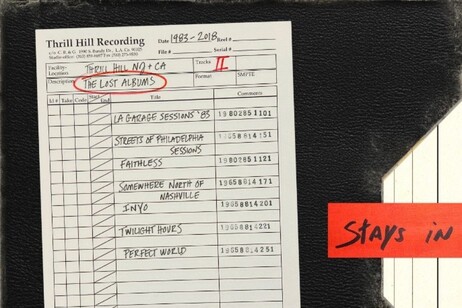 Thrill Hill Recording
Date 1983-2018 Reel #
File # Serial #
Facility: THRILL HILL NJ + CA
Location
Tracks II
Description: THE LOST ALBUMS
Format: SMPTE
Id # Take Code Start End Title Comments
LA GARAGE SESSIONS '83 19802851101
STREETS OF PHILADELPHIA SESSIONS 19658814151
FAITHLESS 19802851121
SOMEWHERE NORTH OF NASHVILLE 19658814171
INYO 19658814201
TWILIGHT HOURS 19658814221
PERFECT WORLD 19658814251
STAYS IN